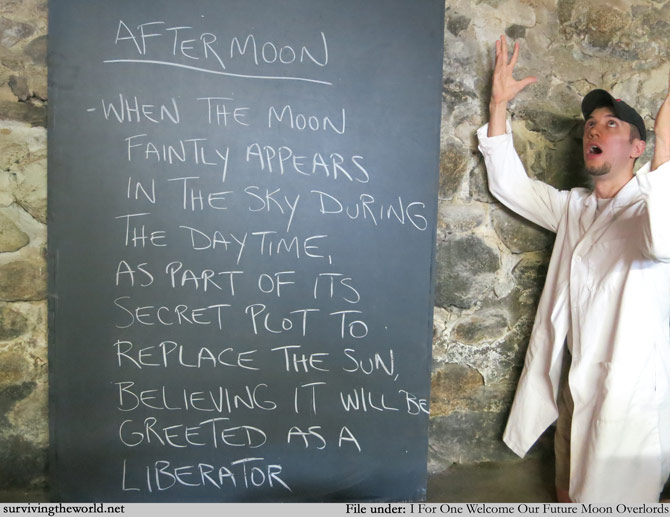 AFTERMOON
-WHEN THE MOON
FAINTLY APPEARS
IN THE SKY DURING
THE DAYTIME,
AS PART OF ITS
SECRET PLOT TO
REPLACE THE SUN,
BELIEVING IT WILL BE
GREETED AS A
LIBERATOR
survivingtheworld.net File under: I For One Welcome Our Future Moon Overlords